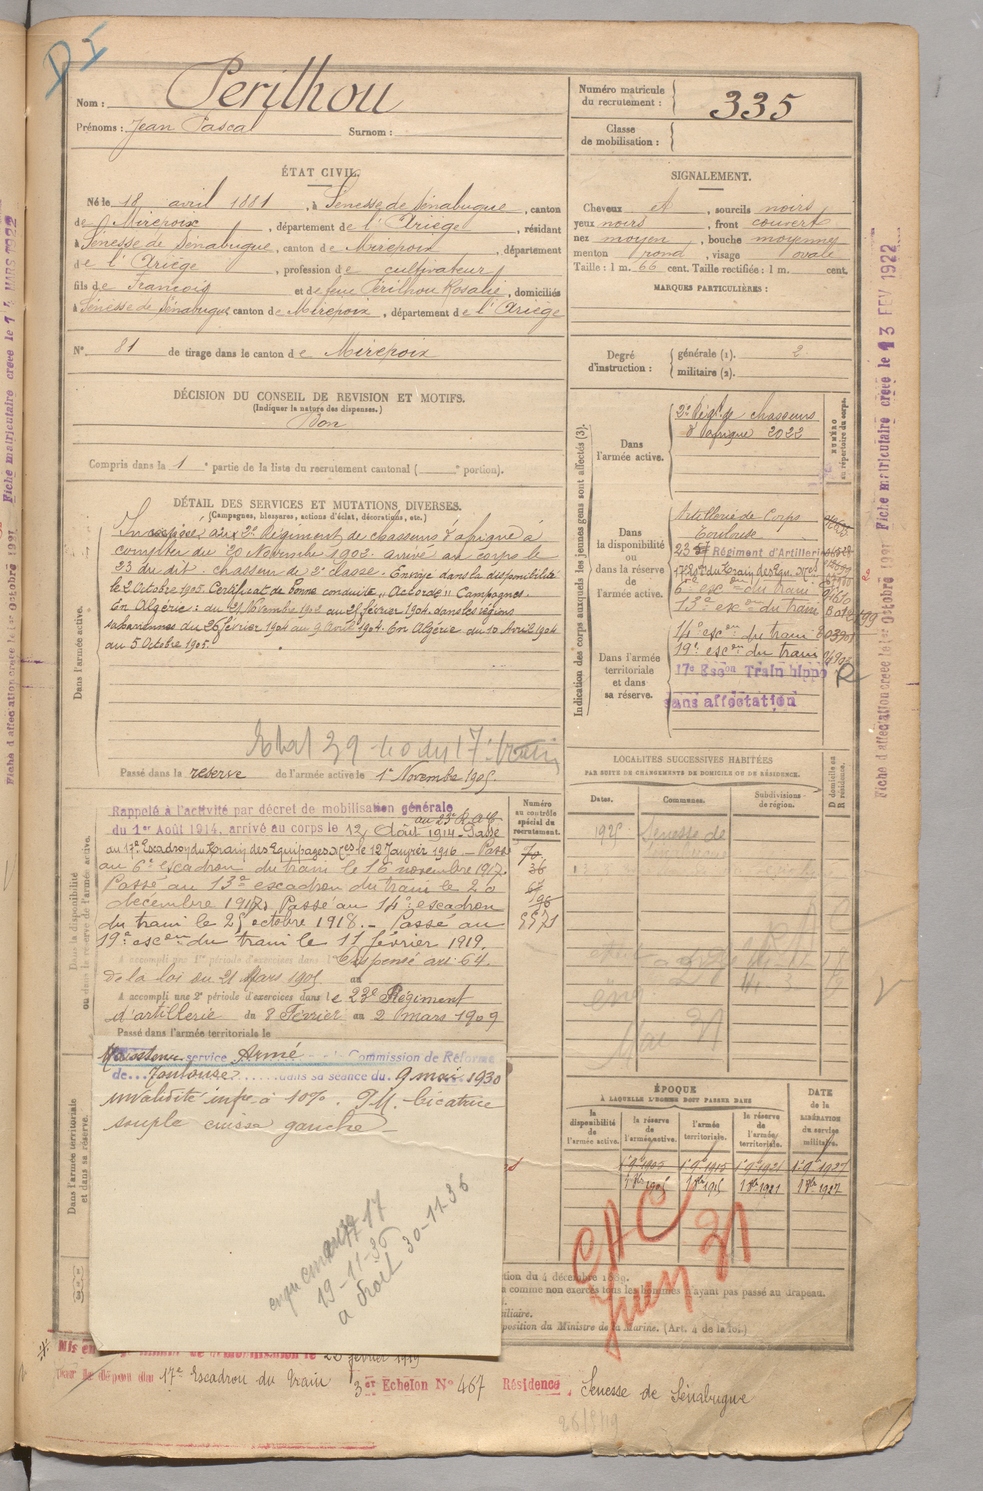 DI
Nom : Perilhou
Prénoms : Jean Pascal Surnom :
Numéro matricule du recrutement : 335
Classe de mobilisation :
ÉTAT CIVIL.
Né le 18 avril 1881, à Senesse de Sénabugue, canton
de Mirepoix, département de l'Ariège, résidant
à Senesse de Sénabugue, canton de Mirepoix, département
de l'Ariège, profession de cultivateur
fils de François et de feue Périlhou Rosalie, domiciliés
à Sénesse de Sénabugue canton de Mirepoix, département de l'Ariège
N° 81 de tirage dans le canton de Mirepoix
SIGNALEMENT.
Cheveux et, sourcils noirs
yeux noirs, front couvert
nez moyen, bouche moyenne
menton rond, visage ovale
Taille : 1 m. 66 cent. Taille rectifiée : 1 m. cent.
MARQUES PARTICULIÈRES :
Degré d'instruction : générale (1). 2
militaire (2).
DÉCISION DU CONSEIL DE REVISION ET MOTIFS.
(Indiquer la nature des dispenses.)
Bon
Compris dans la 1e partie de la liste du recrutement cantonal ( e portion).
DÉTAIL DES SERVICES ET MUTATIONS DIVERSES.
(Campagnes, blessures, actions d'éclat, décorations, etc.)
Dans l'armée active.
Incorporé au 2e Régiment de chasseurs d'afrique à
compter du 20 Novembre 1902. arrivé au corps le
23 du dit. chasseur de 2e classe. Envoyé dans la disponibilité
le 2 Octobre 1905. Certificat de bonne conduite "Accordé". Campagnes.
En Algérie : du 21 Novembre 1902 au 25 février 1904. dans les régions
sahariennes du 26 février 1904 au 9 Avril 1904. En Algérie du 10 Avril 1904
au 5 Octobre 1905.
Passé dans la réserve de l'armée active le 1er Novembre 1905.
Dans la disponibilité ou dans la réserve de l'armée active.
Rappelé à l'activité par décret de mobilisation générale
du 1er Août 1914, arrivé au corps le 12 Août 1914. Passé
au 17e Escadron du Train des Equipages Mres le 12 Janvier 1916 – Passé
au 6e escadron du train le 16 novembre 1917.
Passé au 13e escadron du train le 20
décembre 1917. Passé au 14e escadron
du train le 25 octobre 1918. – Passé au
19e escon du train le 11 février 1919.
A accompli une 1re période d'exercices dans l Dispensé art. 64.
de la loi du 21 Mars 1905 au
A accompli une 2e période d'exercices dans le 23e Régiment
d'artillerie du 8 Février au 2 mars 1909
Passé dans l'armée territoriale le
Numéro au contrôle spécial du recrutement.
36
196
Indication des corps auxquels les jeunes gens sont affectés (3).
NUMÉRO au répertoire du corps.
Dans l'armée active.
2e Régt de chasseurs
d'afrique 2022
Dans la disponibilité ou dans la réserve de l'armée active.
Artillerie de Corps
Toulouse
23 Régiment d'Artillerie
6e escon du train
13e escon du train
Dans l'armée territoriale et dans sa réserve.
14e escon du train
19e escon du train
17e Escon Train hippo
sans affectation
LOCALITÉS SUCCESSIVES HABITÉES
PAR SUITE DE CHANGEMENTS DE DOMICILE OU DE RÉSIDENCE.
Dates. Communes. Subdivisions de région. D domicile ou R résidence.
1925 Senesse de
Dans l'armée territoriale et dans sa réserve.
Maintenu service Armé Commission de Réforme
de Toulouse dans sa séance du 9 mai 1930
invalidité infre à 10%. P.M. Cicatrice
souple cuisse gauche
19-11-35
a droit 30-11-36
ÉPOQUE
À LAQUELLE L'HOMME DOIT PASSER DANS
la disponibilité de l'armée active. la réserve de l'armée active. l'armée territoriale. la réserve de l'armée territoriale. DATE de la LIBÉRATION du service militaire.
CAC
Juin 31
tion du 4 décembre 1889.
a comme non exercés tous les hommes n'ayant pas passé au drapeau.
iliaire.
position du Ministre de la Marine. (Art. 4 de la loi.)
Mis en
le 22 février 1919
par le dépôt du 17e Escadron du Train 3er Echelon N° 467 Résidence, Senesse de Sénabugue
Fiche matriculaire créée le 13 FEV 1922
Fiche d'affectation créée le 1er Octobre 1921
Fiche matriculaire créée le 14 MARS 1922
Fiche d'affectation créée le 1er Octobre 1921